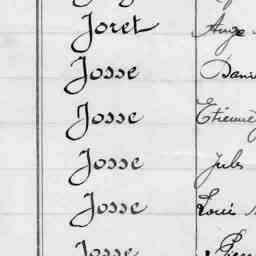 Joret Ange
Josse
Josse Etienne
Josse Jules
Josse Louis
Josse